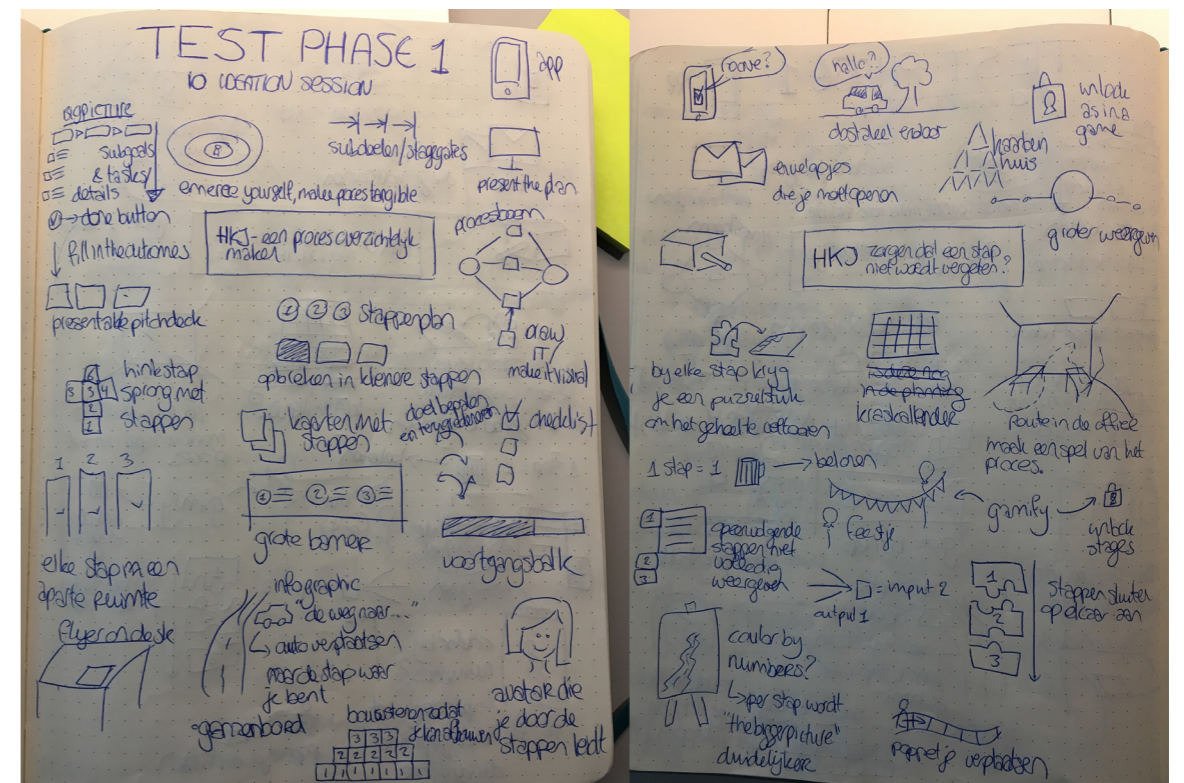 TEST PHASE 1
IDEATION SESSION
app
BIGPICTURE
subgoals
& tasks/
details
done button
fill in the outcomes
presentable pitchdeck
8
emerce yourself, make proces tangible
subdoelen/stagegates
present the plan
HKJ - een proces overzichtelijk
maken
procesboom
draw
IT/
make it visual
1 2 3 stappenplan
opbreken in kleinere stappen
6
5 3 4
2
1
hinkstap
sprong met
stappen
kaarten met
stappen
doel bepalen
en terugredeneren
checklist
1 2 3
elke stap in een
aparte ruimte
1 2 3
grote banner
voortgangsbalk
flyer on desk
infographic
"de weg naar..."
auto verplaatsen
naar de stap waar
je bent
avatar die
je door de
stappen leidt
bouwstenen zodat
je kan afbouwen
3 3 3
2 2 2 2 2
1 1 1 1 1 1 1
hallo?
unlock
as in a
game
envelopjes
die je moet openen
huis
groter weergeven
HKJ zorgen dat een stap
niet wordt vergeten?
bij elke stap krijg
je een puzzelstuk
om het geheel te voltooien
in de planning
kraskalender
route in de office
maak een spel van het
proces.
1 stap = 1
belonen
feestje
gamify
unlock
stages
1
2
3
opeenvolgende
stappen niet
volledig
weergeven
output 1
= input 2
1
2
3
stappen sluiten
op elkaar aan
coulor by
numbers?
per stap wordt
"the bigger picture"
duidelijker
poppetje verplaatsen